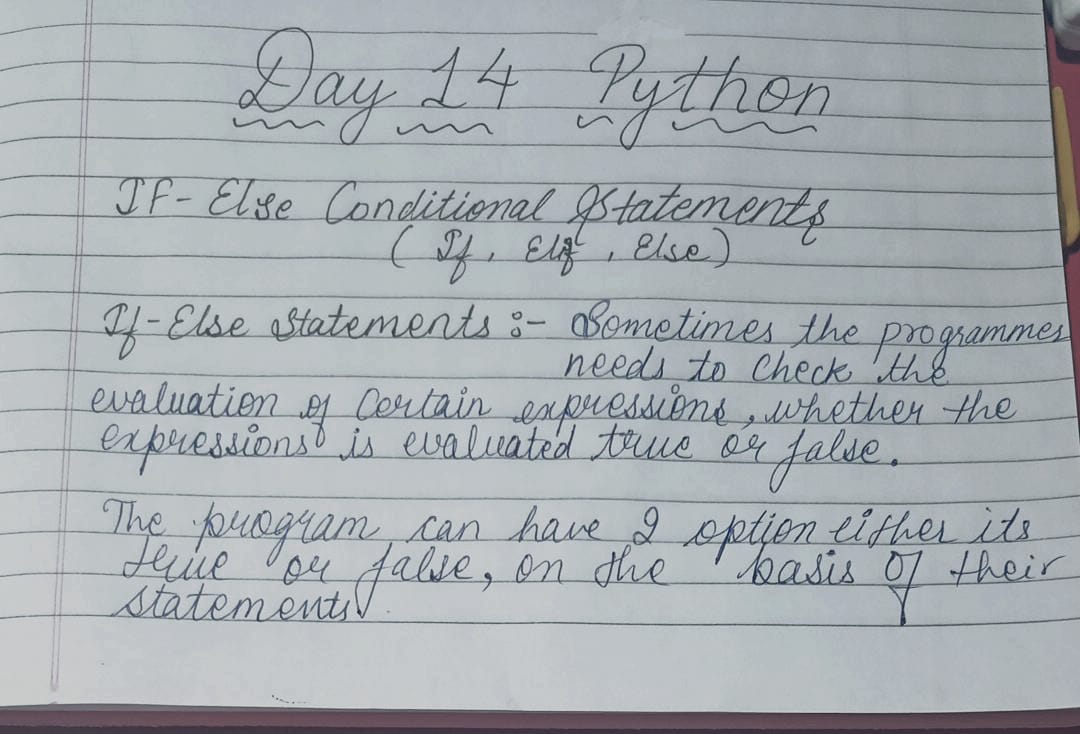 Day 14 Python
IF-Else Conditional Statements
(If, Elif, Else)
If-Else Statements :- Sometimes the programmes
needs to check the
evaluation of certain expressions, whether the
expressions is evaluated true or false.
The program can have 2 option either its
true or false, on the basis of their
statements.